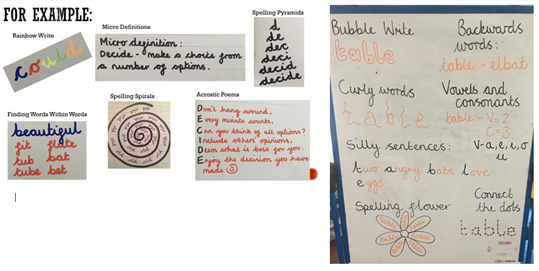 FOR EXAMPLE:
Rainbow Write
could
Micro Definitions
Micro definition:
Decide - make a from
a number of options.
Spelling Pyramids
d
de
dec
deci
decid
decide
Finding Words Within Words
beautiful
fit
tub bat
tube bet
Spelling Spirals
Acrostic Poems
Don't hang around,
Every minute counts,
Can you think of all options?
Include others' opinions,
Deem what is best for you.
Enjoy the decision you have
made
Bubble Write
table
Backwards
words:
table - elbat
Curly words
table
Vowels and
consonants
table - V=2
C=3
v-a,e,i,o
u
Silly sentences:
two angry bats love
eggs
Spelling flower
table
Connect
the dots
table